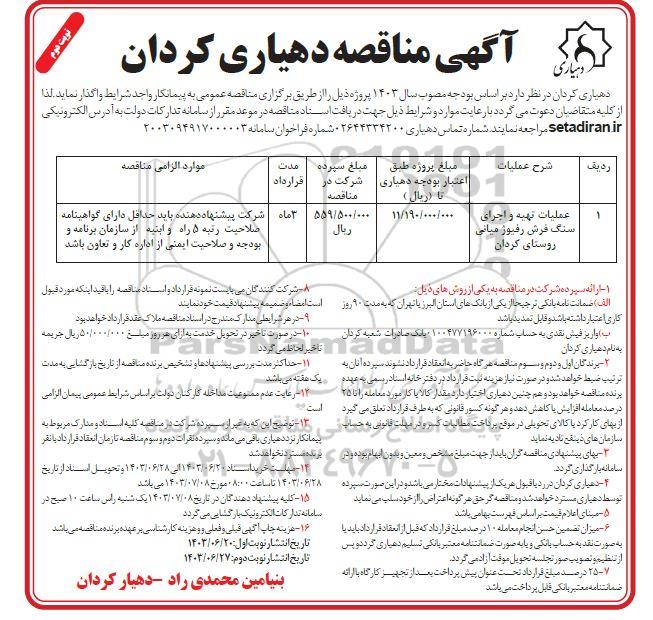 نوبت دوم
آگهی مناقصه دهیاری کردان
دهیاری
دهیاری کردان در نظر دارد بر اساس بودجه مصوب سال ۱۴۰۳ پروژه ذیل را از طریق برگزاری مناقصه عمومی به پیمانکار واجد شرایط واگذار نماید. لذا
از کلیه متقاضیان دعوت می گردد با رعایت موارد و شرایط ذیل جهت دریافت اسناد مناقصه در موعد مقرر از سامانه تدارکات دولت به آدرس الکترونیکی
setadiran.ir مراجعه نمایند. شماره تماس دهیاری ۰۲۶۴۴۳۳۴۲۰۰ شماره فراخوان سامانه ۲۰۰۳۰۹۴۹۱۷۰۰۰۰۰۳
ردیف
شرح عملیات
مبلغ پروژه طبق اعتبار بودجه دهیاری تا (ریال)
مبلغ سپرده شرکت در مناقصه
مدت قرارداد
موارد الزامی مناقصه
۱
عملیات تهیه و اجرای سنگ فرش رفیوژ میانی روستای کردان
۱۱/۱۹۰/۰۰۰/۰۰۰
۵۵۹/۵۰۰/۰۰۰ ریال
۳ماه
شرکت پیشنهاددهنده باید حداقل دارای گواهینامه صلاحیت رتبه ۵ راه و ابنیه از سازمان برنامه و بودجه و صلاحیت ایمنی از اداره کار و تعاون باشد
۱-ارائه سپرده شرکت در مناقصه به یکی از روش های ذیل:
الف) ضمانت نامه بانکی ترجیحا از یکی از بانک های استان البرز یا تهران که به مدت ۹۰ روز
کاری اعتبار داشته باشد و قابل تمدید باشد
ب) واریز فیش نقدی به حساب شماره ۰۱۰۰۴۷۷۱۹۶۰۰۰ بانک صادرات شعبه کردان
به نام دهیاری کردان
۲-برندگان اول و دوم و سوم مناقصه هر گاه حاضر به انعقاد قرارداد نشوند سپرده آنان به
ترتیب ضبط خواهد شد و در صورت نیاز هزینه ثبت قرارداد در دفترخانه اسناد رسمی به عهده
برنده مناقصه خواهد بود و هم چنین دهیاری اختیار دارد مقدار کالا یا کار مورد معامله را تا ۲۵
در صد معامله افزایش یا کاهش دهد و هر گونه کسور قانونی که به طرف قرارداد تعلق می گیرد
از بهای کار کرد یا کالای تحویلی در موقع پرداخت مطالبات کسر و در مهلت قانونی به حساب
سازمان های ذینفع تادیه نماید
۳- بهای پیشنهادی مناقصه گران باید از جهت مبلغ مشخص و معین و بدون ابهام بوده و در
سامانه بارگذاری گردد.
۴-دهیاری کردان در رد یا قبول هر یک از پیشنهادات مختار می باشد و در این صورت سپرده
توسط دهیاری مسترد خواهد شد و مناقصه گر حق هر گونه اعتراض را از خود سلب می نماید
۵-مبنای اعلام قیمت بر اساس فهرست بهامی باشد
۶-میزان تضمین حسن انجام معامله ۱۰ در صد مبلغ قرارداد که قبل از انعقاد قرارداد باید یا
به صورت نقد به حساب بانکی و یا به صورت ضمانتنامه معتبر بانکی تسلیم دهیاری گردد و پس
از تنظیم و تصویب صورتجلسه تحویل موقت آزاد می گردد.
۷-۲۵ در صد مبلغ قرارداد تحت عنوان پیش پرداخت بعد از تجهیز کارگاه با ارائه
ضمانتنامه معتبر بانکی قابل پرداخت می باشد
۸-شرکت کنندگان می بایست نمونه قرارداد و اسناد مناقصه را با قید اینکه مورد قبول
است امضاء و ضمیمه پیشنهاد قیمت خود نمایند
۹-در هر شرایطی مدارک مندرج در اسناد مناقصه ملاک عقد قرارداد خواهد بود
۱۰-در صورت تاخیر در تحویل خدمت به ازای هر روز مبلغ ۵۰/۰۰۰/۰۰۰ ریال جریمه
تاخیر لحاظ می گردد
۱۱-حداکثر مدت بررسی پیشنهادها و تشخیص برنده مناقصه از تاریخ بازگشایی به مدت
یک هفته می باشد
۱۲-رعایت عدم ممنوعیت مداخله کارکنان دولت بر اساس شرایط عمومی پیمان الزامی
است
۱۳-توضیح این که به غیر از سپرده شرکت در مناقصه کلیه اسناد و مدارک مربوط به
پیمانکار نزد دهیاری باقی می ماند و سپرده نفرات دوم و سوم مناقصه تا زمان انعقاد قرارداد با نفر
برنده مسترد نخواهد شد
۱۴-مهلت خرید اسناد ۱۴۰۳/۰۶/۲۰ الی ۱۴۰۳/۰۶/۲۸ و تحویل اسناد از تاریخ
۱۴۰۳/۰۶/۲۸ تا ساعت ۰۸:۰۰ مورخ ۱۴۰۳/۰۷/۰۸ می باشد
۱۵-کلیه پیشنهاد دهندگان در تاریخ ۱۴۰۳/۰۷/۰۸ یک شنبه راس ساعت ۱۰ صبح در
سامانه تدارکات الکترونیک بازگشایی می گردد
۱۶-هزینه چاپ آگهی قبلی و فعلی و هزینه کارشناسی بر عهده برنده مناقصه می باشد
تاریخ انتشار نوبت اول: ۱۴۰۳/۰۶/۲۰
تاریخ انتشار نوبت دوم: ۱۴۰۳/۰۶/۲۷
بنیامین محمدی راد -دهیار کردان